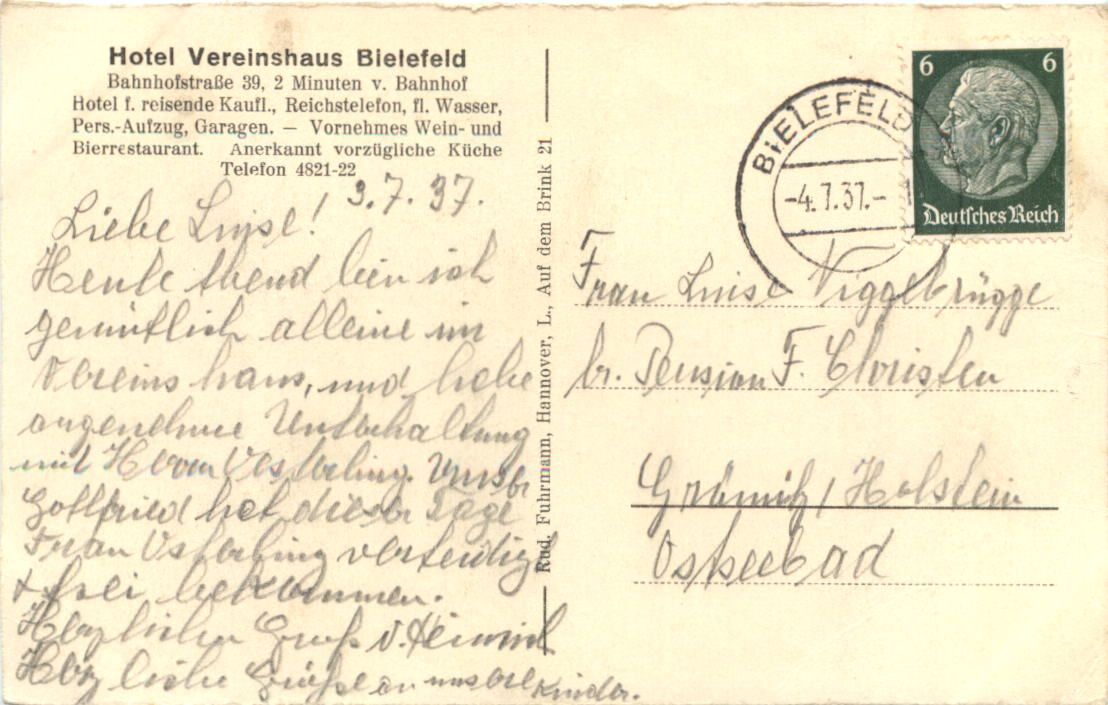 Hotel Vereinshaus Bielefeld
Bahnhofstraße 39, 2 Minuten v. Bahnhof
Hotel f. reisende Kaufl., Reichstelefon, fl. Wasser,
Pers.-Aufzug, Garagen. — Vornehmes Wein- und
Bierrestaurant. Anerkannt vorzügliche Küche
Telefon 4821-22
3.7.37.
Liebe Luise!
Heute Abend bin ich
gemütlich alleine im
Vereinshaus, und habe
angenehme Unterhaltung
mit Herrn Unser
Gottfried hat dieser Tage
Frau verteidigt
+ frei bekommen.
Herzlichen Gruß v. Heinrich
Herzliche Grüße an unsere Kinder.
Rud. Fuhrmann, Hannover, L., Auf dem Brink 21
BIELEFELD
-4.7.37.-
6 6
Deutsches Reich
Frau Luise Niggebrügge
br. Pension F. Christen
Grömitz / Holstein
Ostseebad